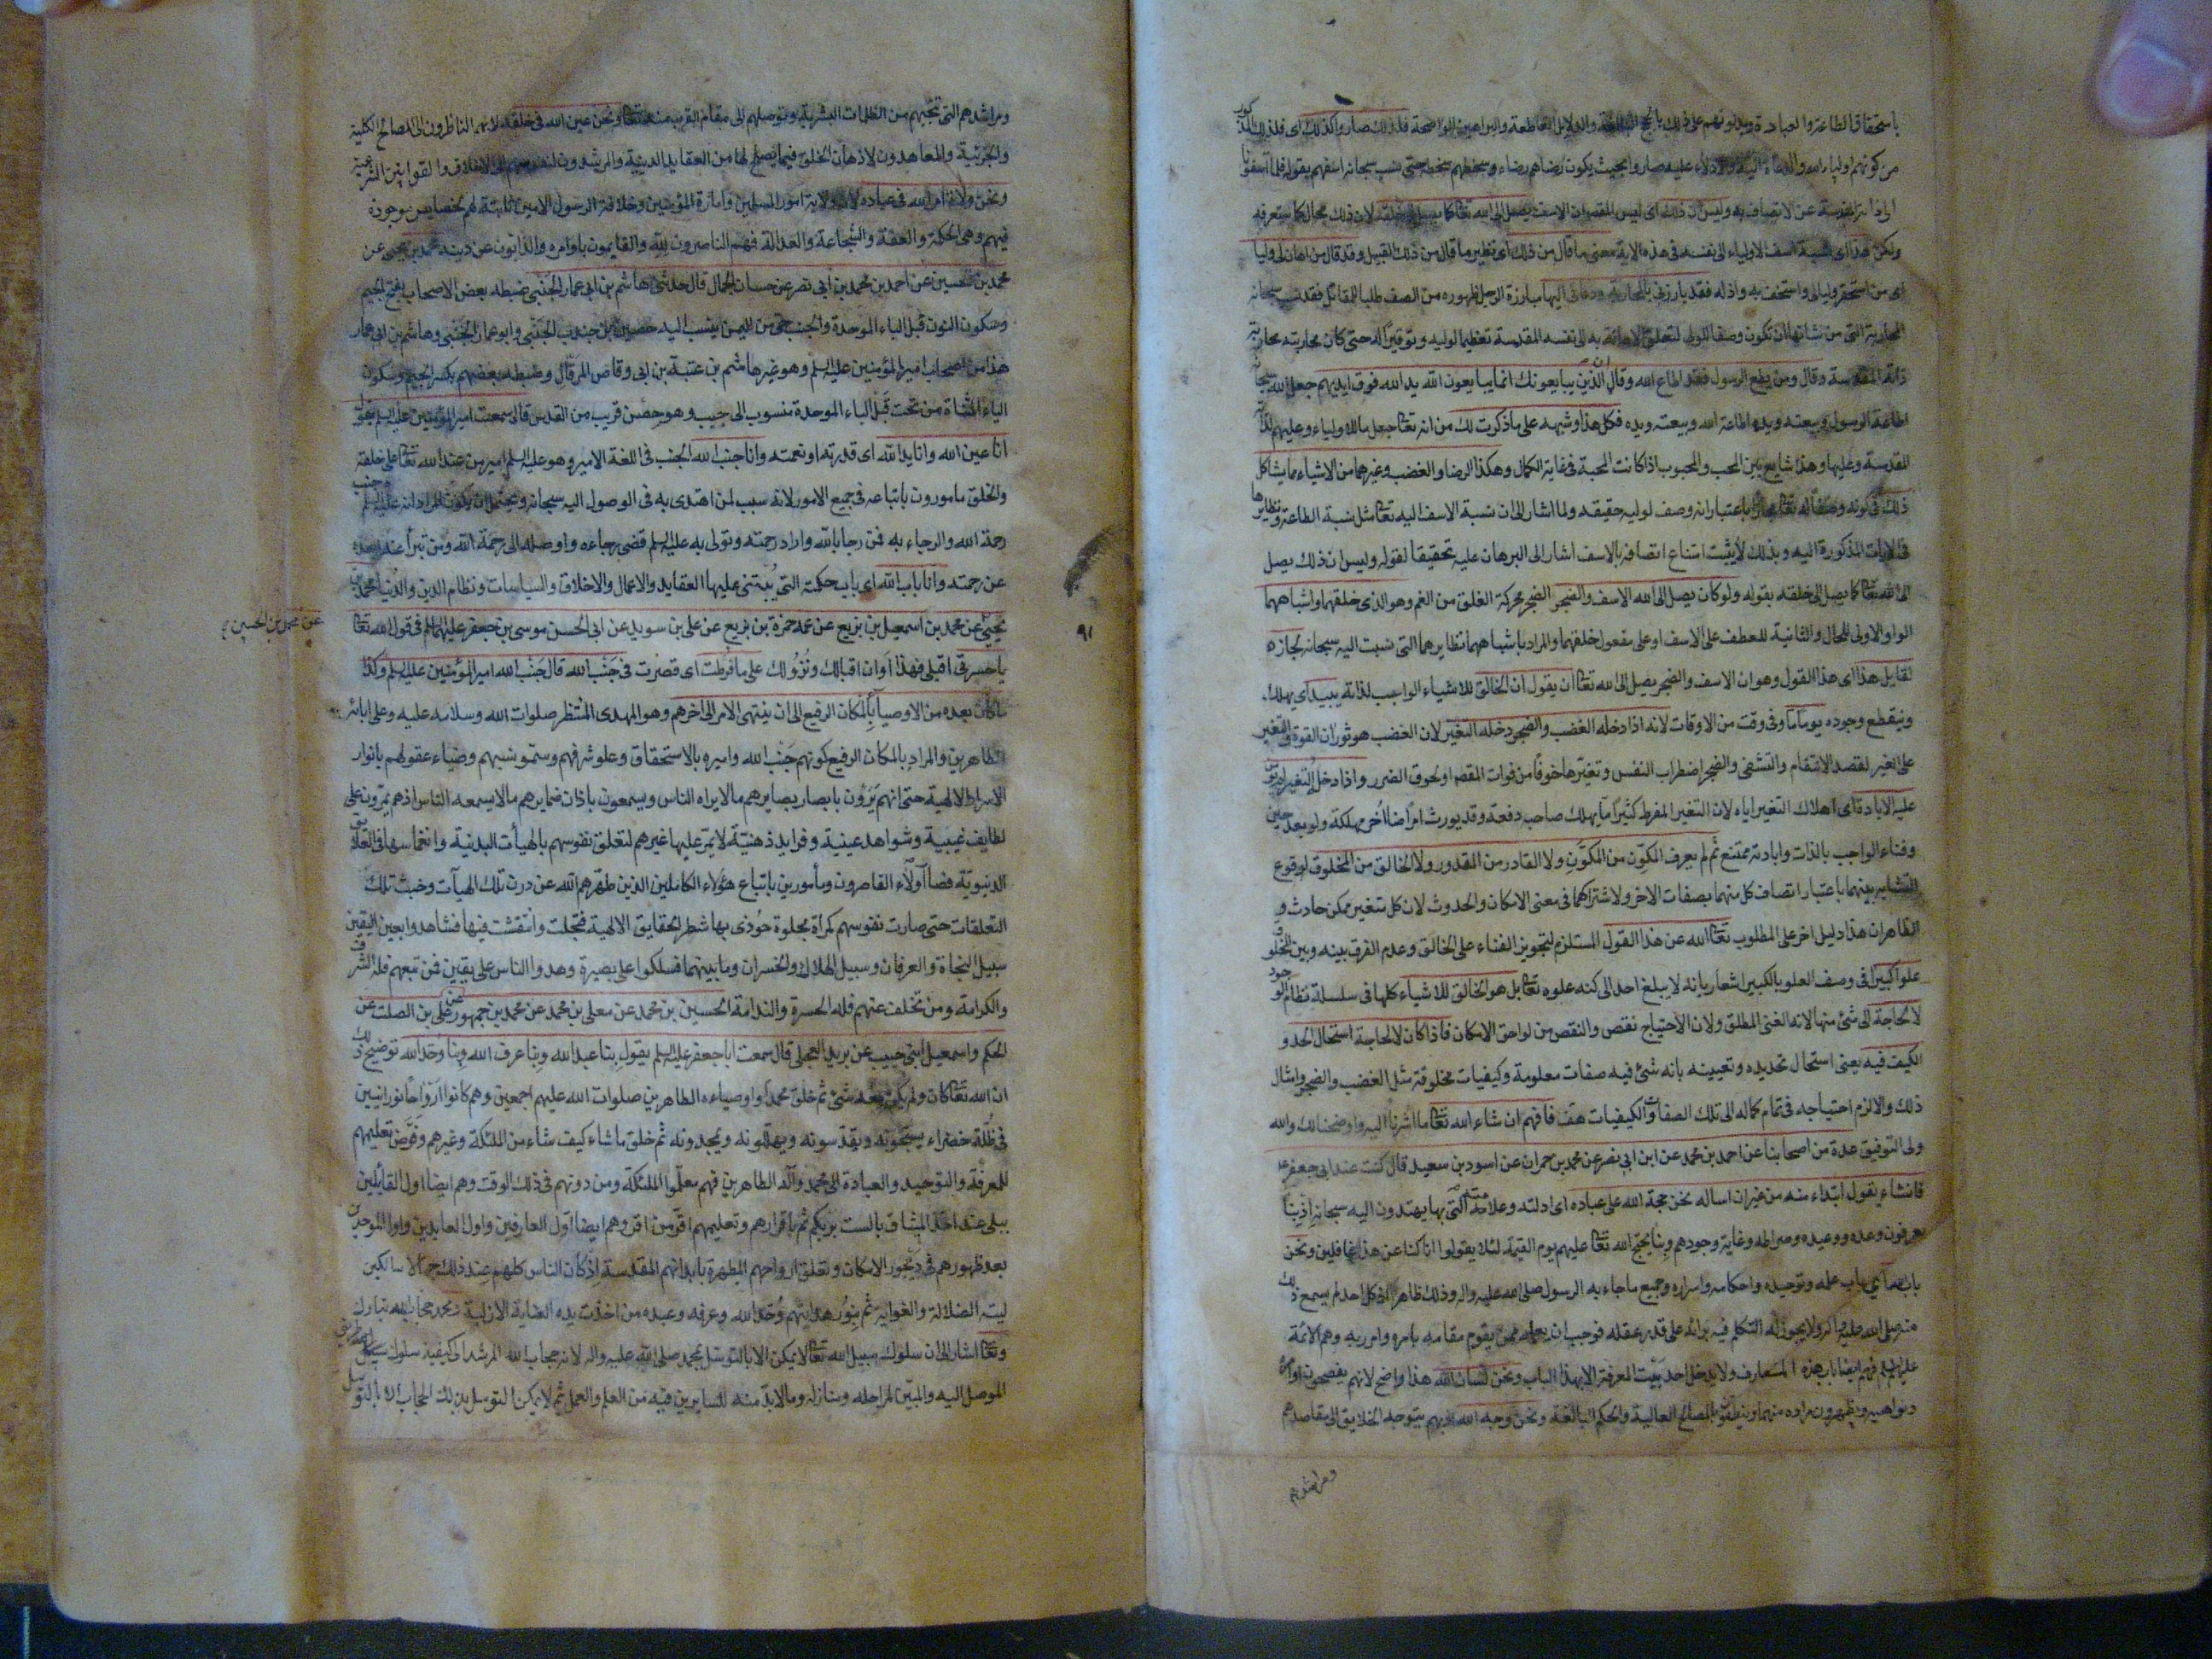 باستحقاق الطاعة والعبادة ويدلونهم على ذلك بالحجج البالغة والدلايل القاطعة والبراهين الواضحة فلذلك صاروا كذلك اى فلذلك المذكور
من كونهم اولياء الله والدعاة اليه والادلاء عليه صاروا بحيث يكون رضاهم رضاء وسخطهم سخطه حتى نسب سبحانه اسفهم بقوله فلما آسفونا
وليس ان ذلك اى ليس المقصود ان الاسف يصل الى الله تعا كما يصل الى خلقه لان ذلك محال كما ستعرفه
ولكن هذا اى نسبة اسف الاولياء الى نفسه فى هذه الآية معنى ما قال من ذلك اى نظير ما قال من ذلك القبيل وقد قال من اهان لى وليا
اى من استحقر وليا لى واستخف به واذله فقد بارزنى بالمحاربة ودعانى اليها مبارزة الرجل ظهوره من الصف طلبا للمقاتل فقد نسب سبحانه
المحاربة التى من شانها ان تكون وصفا للولى لتعلق الاهانة به الى نفسه المقدسة تعظيما لوليه وتوقيرا له حتى كان محاربته محاربة
ذاته المقدسة وقال ومن يطع الرسول فقد اطاع الله وقال ان الذين يبايعونك انما يبايعون الله يد الله فوق ايديهم جعل الله سبحانه
اطاعة الرسول وبيعته ويده اطاعة الله وبيعته ويده فكل هذا وشبهه على ما ذكرت لك من انه تعا جعل ما للاولياء وعليهم لذاته
المقدسة وعليها وهذا شايع بين المحب والمحبوب اذا كانت المحبة فى غاية الكمال وهكذا الرضا والغضب وغيرهما من الاشياء مما يشاكل
ذلك فى كونه وصفا له تعا مجازا باعتبار انه وصف لوليه حقيقة ولما اشار الى ان نسبة الاسف اليه تعا مثل نسبة الطاعة ونظايرها
فى الايات المذكورة اليه وبذلك لا يثبت امتناع اتصافه بالاسف اشار الى البرهان عليه تحقيقا لقوله وليس ان ذلك يصل
الى الله تعا كما يصل الى خلقه بقوله ولو كان يصل الى الله الاسف والضجر الضجر محركة القلق من الغم وهو الذى خلقهما واشباههما
الواو الاولى للحال والثانية للعطف على الاسف او على مفعول خلقهما والمراد باشباههما نظايرهما التى نسبت اليه سبحانه لجاز
لقايل هذا اى هذا القول وهو ان الاسف والضجر يصل الى الله تعا ان يقول ان الخالق للاشياء الواجب لذاته يبيد اى يهلك
وينقطع وجوده يوما ما وفى وقت من الاوقات لانه اذا دخله الغضب والضجر دخله التغير لان الغضب هو ثوران القوة والتغير
على الغير لقصد الانتقام والتشفى والضجر اضطراب النفس وتغيرها خوفا من فوات المقصد او لحوق الضرر واذا دخل التغير لم يؤمن
عليه الابادة اى اهلاك التغير اياه لان التغير المفرط كثيرا ما يهلك صاحبه دفعة وقد يورث امراضا اخر مهلكة ولو بعد حين
وفناء الواجب بالذات وابادته ممتنع ثم لم يعرف المكوّن من المكوَّن ولا القادر من المقدور ولا الخالق من المخلوق لوقوع
التشابه بينهما باعتبار اتصاف كل منهما بصفات الاخر ولاشتراكهما فى معنى الامكان والحدوث لان كل متغير ممكن حادث و
الظاهر ان هذا دليل اخر على المطلوب تعا الله عن هذا القول المستلزم لتجويز الفناء على الخالق وعدم الفرق بينه وبين المخلوق
علوا كبيرا فى وصف العلو بالكبير اشعار بانه لا يبلغ احد الى كنه علوه تعا بل هو الخالق للاشياء كلها فى سلسلة نظام الوجود
لا لحاجة الى شئ منها لانه الغنى المطلق ولان الاحتياج نقص والنقص من لواحق الامكان فاذا كان لا لحاجة استحال الحد و
الكيف فيه يعنى استحال تحديده وتعيينه بانه شئ فيه صفات معلومة وكيفيات مخلوقة مثل الغضب والضجر وامثال
ذلك والا لزم احتياجه فى تمام كماله الى تلك الصفات والكيفيات هف فافهم ان شاء الله تعا ما اشرنا اليه واوضحنا لك والله
ولى التوفيق عدة من اصحابنا عن احمد بن محمد عن ابن ابى نصر عن محمد بن حمران عن اسود بن سعيد قال كنت عند ابى جعفر ع
فانشاء يقول ابتداء منه من غير ان اساله نحن حجة الله على عباده اى ادلته وعلامته التى بها يهتدون اليه سبحانه اذ بنا
يعرفون وعده ووعيده وصراطه وغاية وجودهم وبنا يحتج الله تعا عليهم يوم القيمة لئلا يقولوا انا كنا عن هذا غافلين ونحن
باب الله اى باب علمه وتوحيده واحكامه واسراره وجميع ما جاء به الرسول صلى الله عليه واله وذلك ظاهر اذ كل احد لم يسمع ذلك
منه صلى الله عليه واله ولا يجوز له التكلم فيه برائه على قدر عقله فوجب ان يعلمه ممن يقوم مقامه بامره وامر ربه وهم الائمة
عليهم السلم فهم ايضا باب هذه المعارف ولا يدخل احد بيت المعرفة الا بهذا الباب ونحن لسان الله هذا واضح لانهم يفصحون اوامره
ونواهيه ويظهرون مراده منهما وينطقون بالمصالح العالية والحكم البالغة ونحن وجه الله اذ بهم يتوجه الخلايق الى مقاصدهم
ومراشدهم
ومراشدهم التى تنجيهم من الظلمات البشرية وتوصلهم الى مقام القرب منه تعا ونحن عين الله فى خلقه لانهم الناظرون الى المصالح الكلية
والجزئية والمعاهدون لاذهان الخلق فيما يصلح لها من العقايد الدينية والمرشدون لنفوسهم الى الاخلاق والقوانين الشرعية
ونحن ولاة امر الله فى عباده لان ولاية امور المسلمين وامارة المؤمنين وخلافة الرسول الامين ثابتة لهم بخصايص موجودة
فيهم وهى الحكمة والعفة والشجاعة والعدالة فهم الناصرون لله والقايمون باوامره والذابون عن دينه محمد بن يحيى عن
محمد بن الحسين عن احمد بن محمد بن ابى نصر عن حسان الجمال قال حدثنى هاشم بن ابى عمار الجنبى ضبطه بعض الاصحاب بفتح الجيم
وسكون النون قبل الباء الموحدة والجنب حى من اليمن ينسب اليه حصين بن جندب الجنبى وابو عمار الجنبى وهاشم بن ابى عمار
هذا من اصحاب امير المؤمنين عليه السلم وهو غير هاشم بن عتبة بن ابى وقاص المرقال وضبطه بعضهم بكسر الجيم وسكون
الياء المثناة من تحت قبل الباء الموحدة منسوب الى جيب وهو حصن قريب من القدس قال سمعت امير المؤمنين عليه السلم يقول
انا عين الله وانا يد الله اى قدرته او نعمته وانا جنب الله الجنب فى اللغة الامير وهو عليه السلم امير من عند الله تعا على خلقه
والخلق مامورون باتباعه فى جميع الامور لانه سبب لمن اهتدى به فى الوصول اليه سبحانه ويحتمل ان يكون المراد انه عليه السلم جنب
رحمة الله والرجاء به فمن رجا بالله واراد رحمته وتولى به عليه السلم قضى رجاءه واوصله الى رحمة الله ومن تبرأ عنه ابعده
عن رحمته وانا باب الله اى باب حكمته التى يبتنى عليها العقايد والاعمال والاخلاق والسياسات ونظام الدين والدنيا محمد بن
يحيى عن محمد بن اسمعيل بن بزيع عن عمه حمزة بن بزيع عن على بن سويد عن ابى الحسن موسى بن جعفر عليهما السلم فى قول الله تعا
عن محمد بن الحسين
يا حسرتى اقبلى فهذا اوان اقبالك ونزولك على ما فرطت اى قصرت فى جنب الله قال جنب الله امير المؤمنين عليه السلم وكذا
ما كان بعده من الاوصياء بالمكان الرفيع الى ان ينتهى الامر الى اخرهم وهو المهدى المنتظر صلوات الله وسلامه عليه وعلى ابائه
الطاهرين والمراد بالمكان الرفيع كونهم جنب الله واميره بالاستحقاق وعلو شرفهم وسمو نسبهم وضياء عقولهم بانوار
الاسرار الالهية حتى انهم يرون بابصار بصايرهم ما لا يراه الناس ويسمعون باذان ضمايرهم ما لا يسمعه الناس اذ هم يمرون على
لطايف غيبية وشواهد عينية وفرايد ذهنية لا يمر عليها غيرهم لتعلق نفوسهم بالهيآت البدنية وانغماسها فى العلايق
الدنيوية فصار اولاء القاصرون مأمورين باتباع هؤلاء الكاملين الذين طهرهم الله عن درن تلك الهيآت وخبث تلك
التعلقات حتى صارت نفوسهم كمرآة مجلوة حوذى بها شطر الحقايق الالهية فتجلت وانتقشت فيها فشاهدوا بعين اليقين
سبيل النجاة والعرفان وسبيل الهلاك والخسران وما بينهما فسلكوا على بصيرة وهدوا الناس على يقين فمن تبعهم فله الشرف
والكرامة ومن تخلف عنهم فله الحسرة والندامة الحسين بن محمد عن معلى بن محمد عن محمد بن جمهور عن على بن الصلت عن
الحكم واسمعيل ابنى حبيب عن بريد العجلى قال سمعت ابا جعفر عليه السلم يقول بنا عبد الله وبنا عرف الله وبنا وحد الله توضيح ذلك
ان الله تعا كان ولم يكن معه شئ ثم خلق محمدا واوصياءه الطاهرين صلوات الله عليهم اجمعين وهم كانوا ارواحا نورانيين
فى ظلة خضراء يسبحونه ويقدسونه ويهللونه ويمجدونه ثم خلق ما شاء كيف شاء من الملئكة وغيرهم وفوض تعليمهم
للمعرفة والتوحيد والعبادة الى محمد وآله الطاهرين فهم معلموا الملئكة ومن دونهم فى ذلك الوقت وهم ايضا اول القائلين
ببلى عند اخذ الميثاق بالست بربكم ثم باقرارهم وتعليمهم اقر من اقر وهم ايضا اول العارفين واول العابدين واول الموحدين
بعد ظهورهم فى ديجور الامكان وتعلق ارواحهم المطهرة بابدانهم المقدسة اذ كان الناس كلهم عند ذلك جهالا سالكين
لتيه الضلالة والغواية ثم بنور هدايتهم وحد الله وعرفه وعبده من اخذت بيده العناية الازلية ومحمد حجاب الله تبارك
وتعا اشار الى ان سلوك سبيل الله تعا لا يمكن الا بالتوسل بمحمد صلى الله عليه واله لانه حجاب الله المرشد الى كيفية سلوك
الموصل اليه والمبين لمراحله ومنازله وما لا بد منه للسايرين فيه من العلم والعمل ثم لا يمكن التوسل بذلك الحجاب الا بالتوسل
٩١